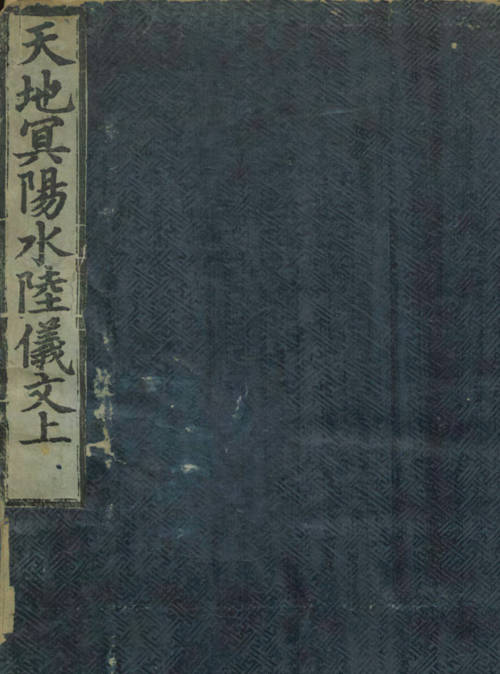 天地冥陽水陸儀文上